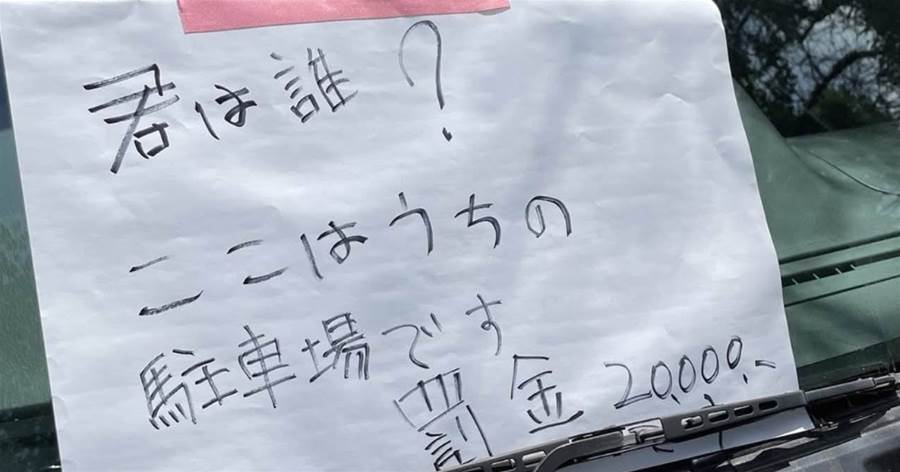 君は誰?
ここはうちの
駐車場です
罰金 20,000.-